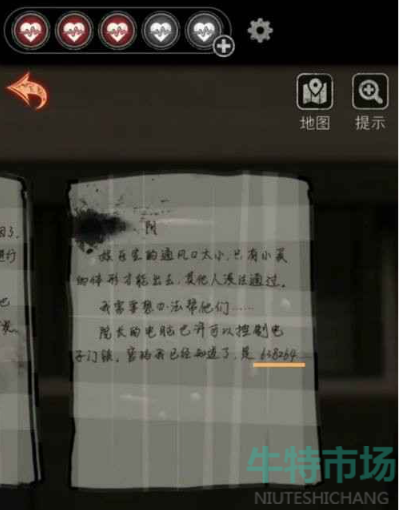 地图
提示
因3.
进行
阴
娱乐室的通风口太小,只有小美
的体形才能出去,其他人没法通过。
我需要想办法帮他们……
院长的电脑也许可以控制电
子门锁。密码我已经知道了,是638264
牛特市场
NIUTESHICHANG